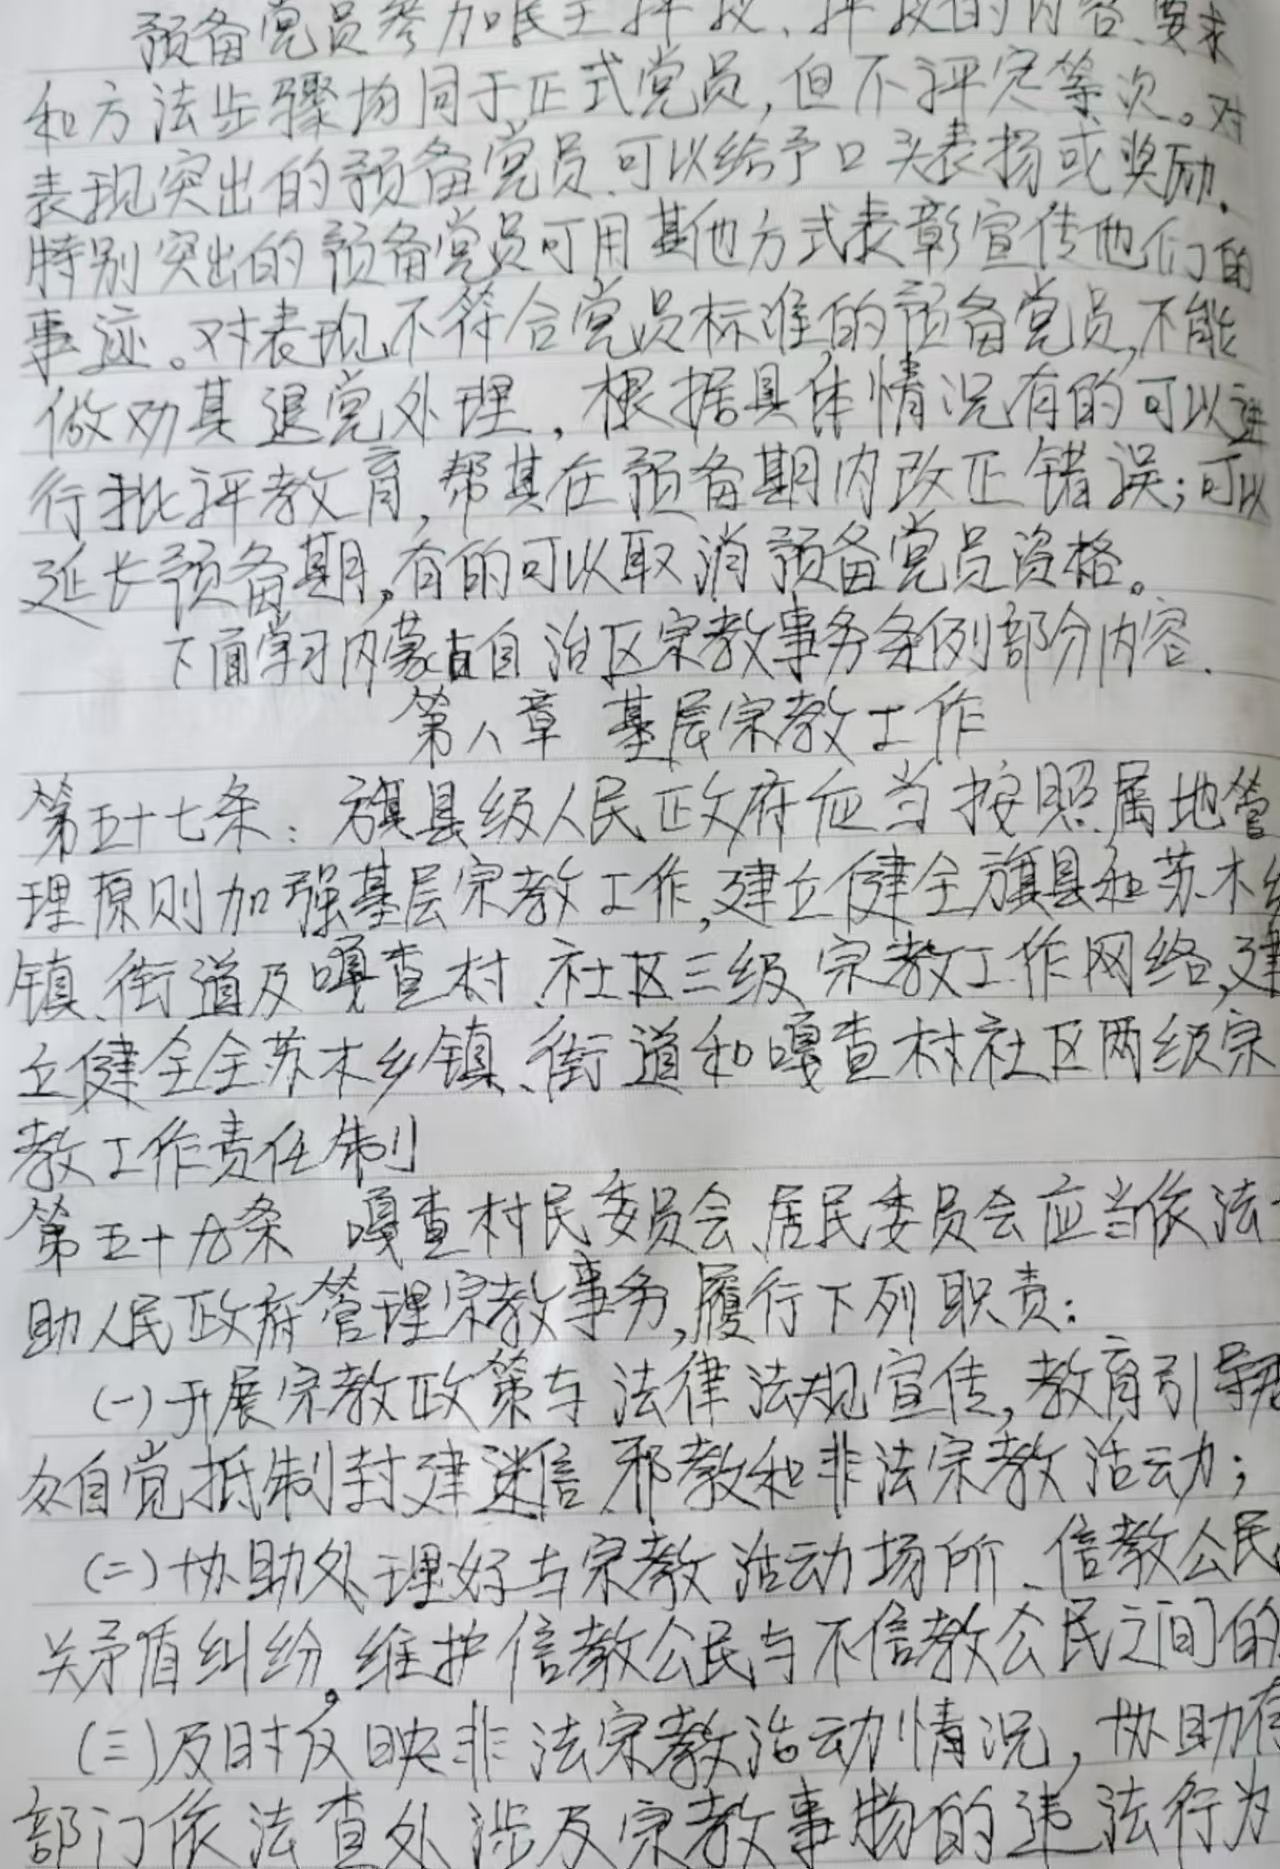 预备党员参加民主评议、评议的内容、要求
和方法步骤均同于正式党员,但不评定等次。对
表现突出的预备党员、可以给予口头表扬或奖励。
特别突出的预备党员可用其他方式表彰宣传他们的
事迹。对表现不符合党员标准的预备党员,不能
做劝其退党处理。根据具体情况有的可以进
行批评教育,帮其在预备期内改正错误;可以
延长预备期,有的可以取消预备党员资格。
下面学习内蒙古自治区宗教事务条例部分内容.
第八章 基层宗教工作
第五十七条:旗县级人民政府应当按照属地管
理原则加强基层宗教工作,建立健全旗县和苏木乡
镇、街道及嘎查村、社区三级宗教工作网络,建
立健全全苏木乡镇、街道和嘎查村社区两级宗
教工作责任制
第五十九条 嘎查村民委员会、居民委员会应当依法
助人民政府管理宗教事务,履行下列职责:
(一)开展宗教政策与法律法规宣传,教育引导
众自觉抵制封建迷信、邪教和非法宗教活动;
(二)协助处理好与宗教活动场所、信教公民
关矛盾纠纷。维护信教公民与不信教公民之间的
(三)及时反映非法宗教活动情况,协助有
部门依法查处涉及宗教事物的违法行为